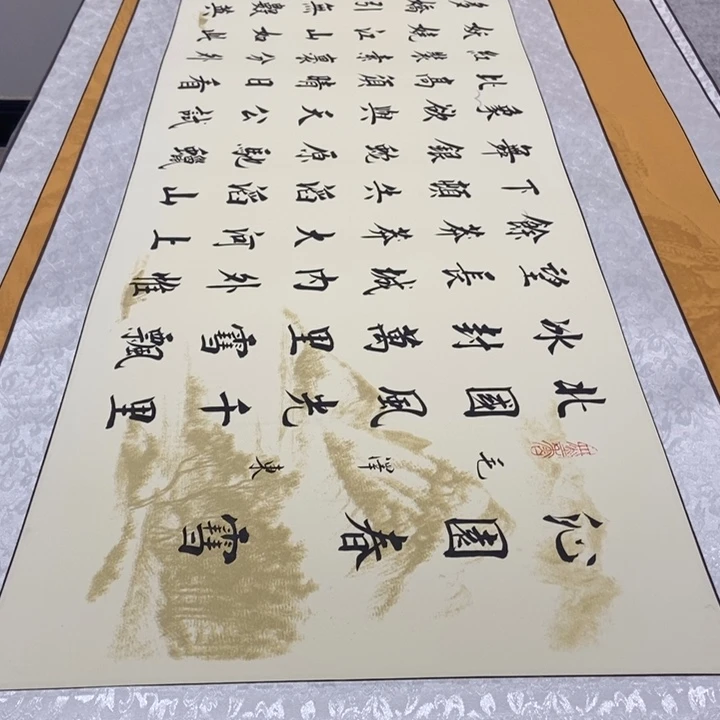 沁園春雪
毛澤東
北國風光千里
冰封萬里雪飄
望長城內外惟
餘莽莽大河上
下頓失滔滔山
舞銀蛇原馳蠟
象欲與天公試
比高須晴日看
紅裝素裹分外
妖嬈江山如此
多嬌引無數英